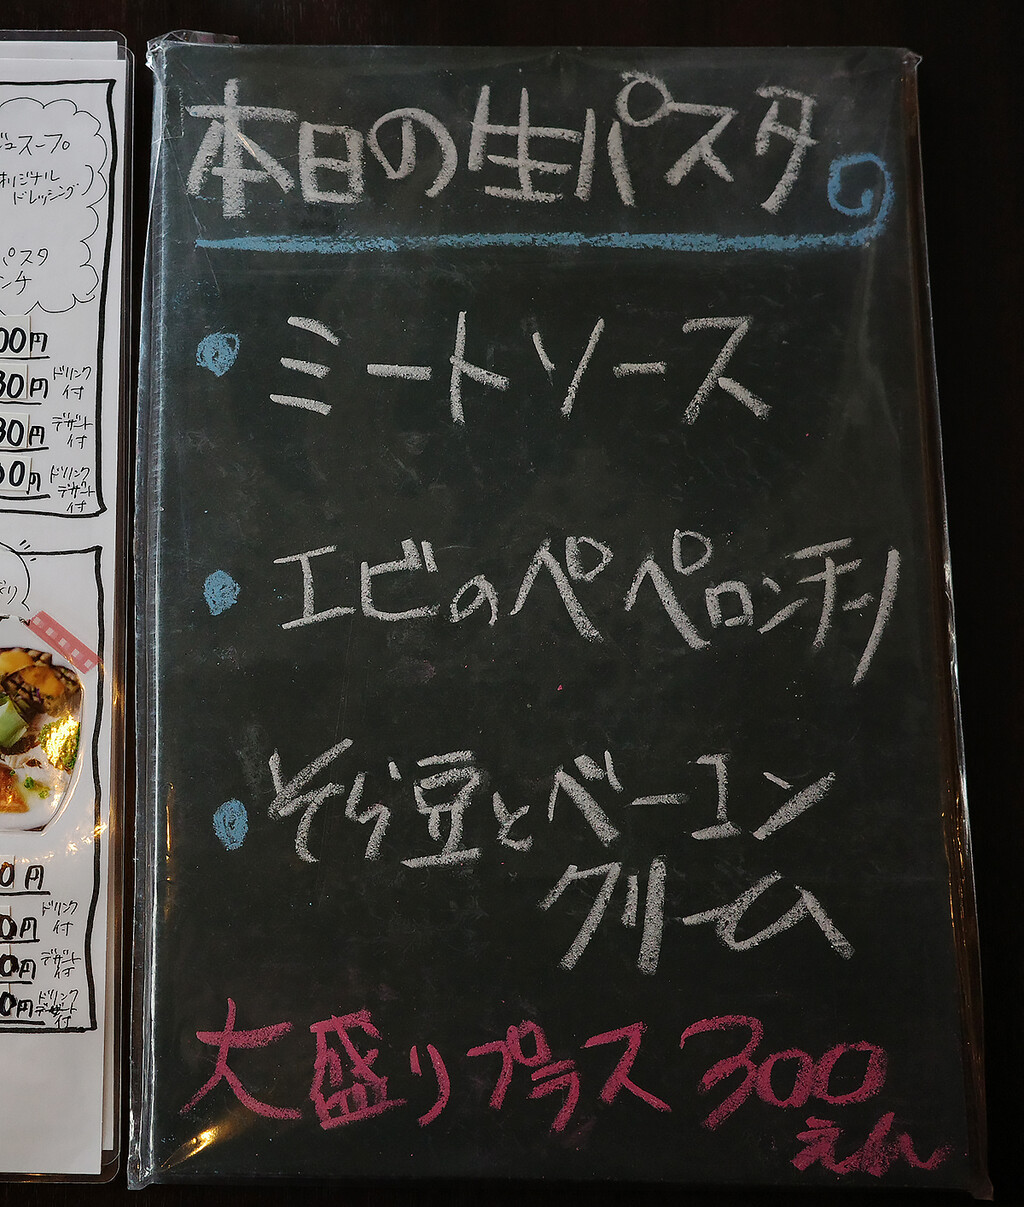 スープ
オリジナル
ドレッシング
パスタ
00円
80円 ドリンク付
80円 デザート付
00円 ドリンクデザート付
0円
0円 ドリンク付
0円 デザート付
0円 ドリンクデザート付
本日の生パスタ
・ミートソース
・エビのペペロンチーノ
・そら豆とベーコン
クリーム
大盛りプラス300
えん